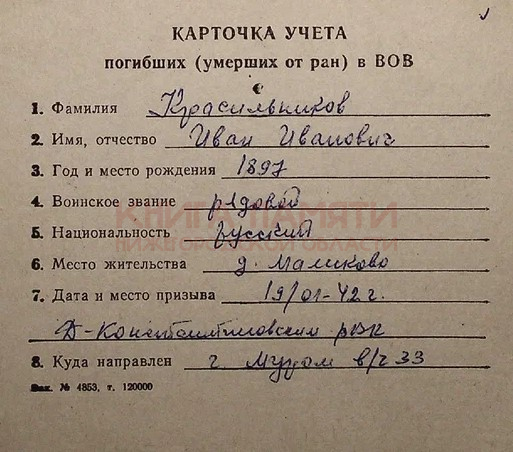 КАРТОЧКА УЧЕТА
погибших (умерших от ран) в ВОВ
1. Фамилия Красильников
2. Имя, отчество Иван Иванович
3. Год и место рождения 1897
4. Воинское звание рядовой
КНИГА ПАМЯТИ
5. Национальность русский
НИЖЕГОРОДСКОЙ ОБЛАСТИ
6. Место жительства д. Маликово
7. Дата и место призыва 19/01-42 г.
Д-Константиновским РВК
8. Куда направлен г. Муром в/ч 33
Зак. № 4853, т. 120000